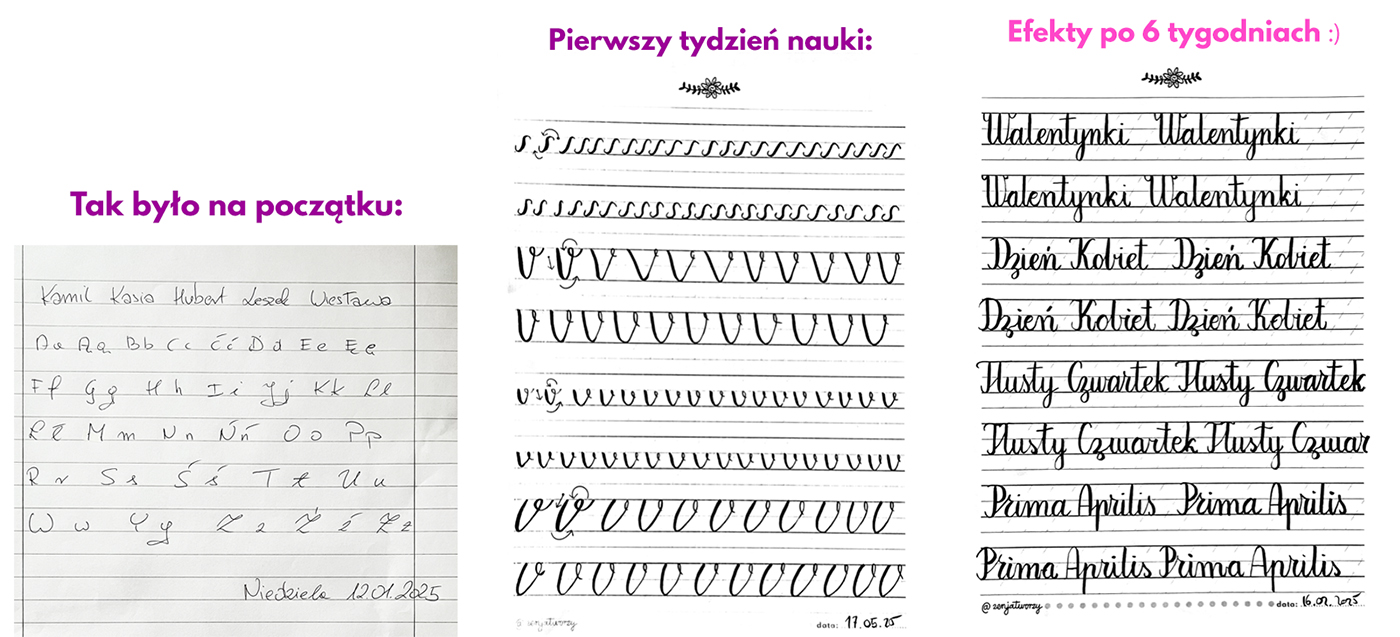 Tak było na początku:
Kamil Kasia Hubert Leszek Wiesława
Aa Ąą Bb Cc Ćć Dd Ee Ęę
Ff Gg Hh Ii Jj Kk Ll
Łł Mm Nn Ńń Oo Pp
Rr Ss Śś Tt Uu
Ww Yy Zz Źź Żż
Niedziela 12.01.2025
Pierwszy tydzień nauki:
data: 17.05.25
Efekty po 6 tygodniach :)
Walentynki Walentynki
Walentynki Walentynki
Dzień Kobiet Dzień Kobiet
Dzień Kobiet Dzień Kobiet
Tłusty Czwartek Tłusty Czwartek
Tłusty Czwartek Tłusty Czwar
Prima Aprilis Prima Aprilis
Prima Aprilis Prima Aprilis
@zenjatworzy data: 16.02.2025